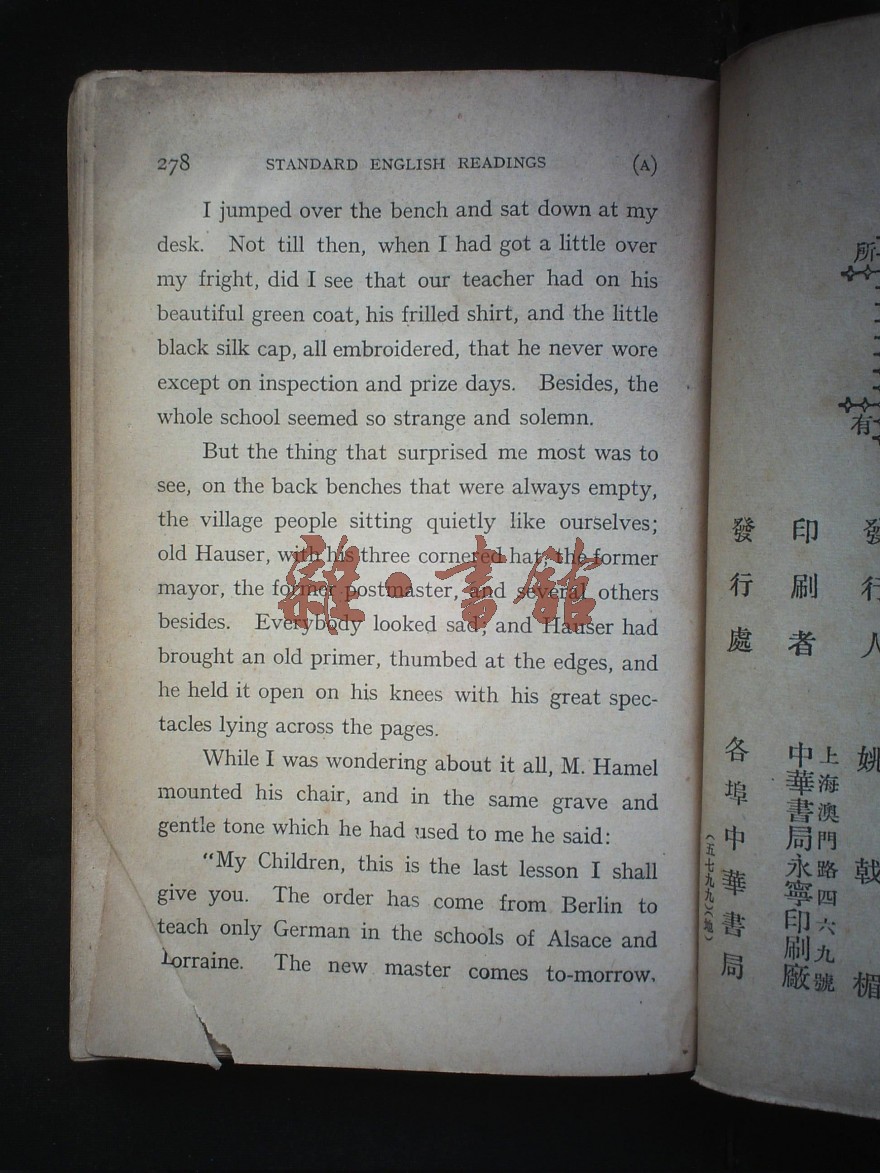 278 STANDARD ENGLISH READINGS (A)
I jumped over the bench and sat down at my
desk. Not till then, when I had got a little over
my fright, did I see that our teacher had on his
beautiful green coat, his frilled shirt, and the little
black silk cap, all embroidered, that he never wore
except on inspection and prize days. Besides, the
whole school seemed so strange and solemn.
But the thing that surprised me most was to
see, on the back benches that were always empty,
the village people sitting quietly like ourselves;
old Hauser, with his three cornered hat, the former
mayor, the former postmaster, and several others
besides. Everybody looked sad; and Hauser had
brought an old primer, thumbed at the edges, and
he held it open on his knees with his great spec-
tacles lying across the pages.
While I was wondering about it all, M. Hamel
mounted his chair, and in the same grave and
gentle tone which he had used to me he said:
"My Children, this is the last lesson I shall
give you. The order has come from Berlin to
teach only German in the schools of Alsace and
Lorraine. The new master comes to-morrow.
雜·書館
所
有
發行人 姚戟楣
印刷者 上海澳門路四六九號
中華書局永寧印刷廠
發行處 各埠中華書局
(五七九九)(地)